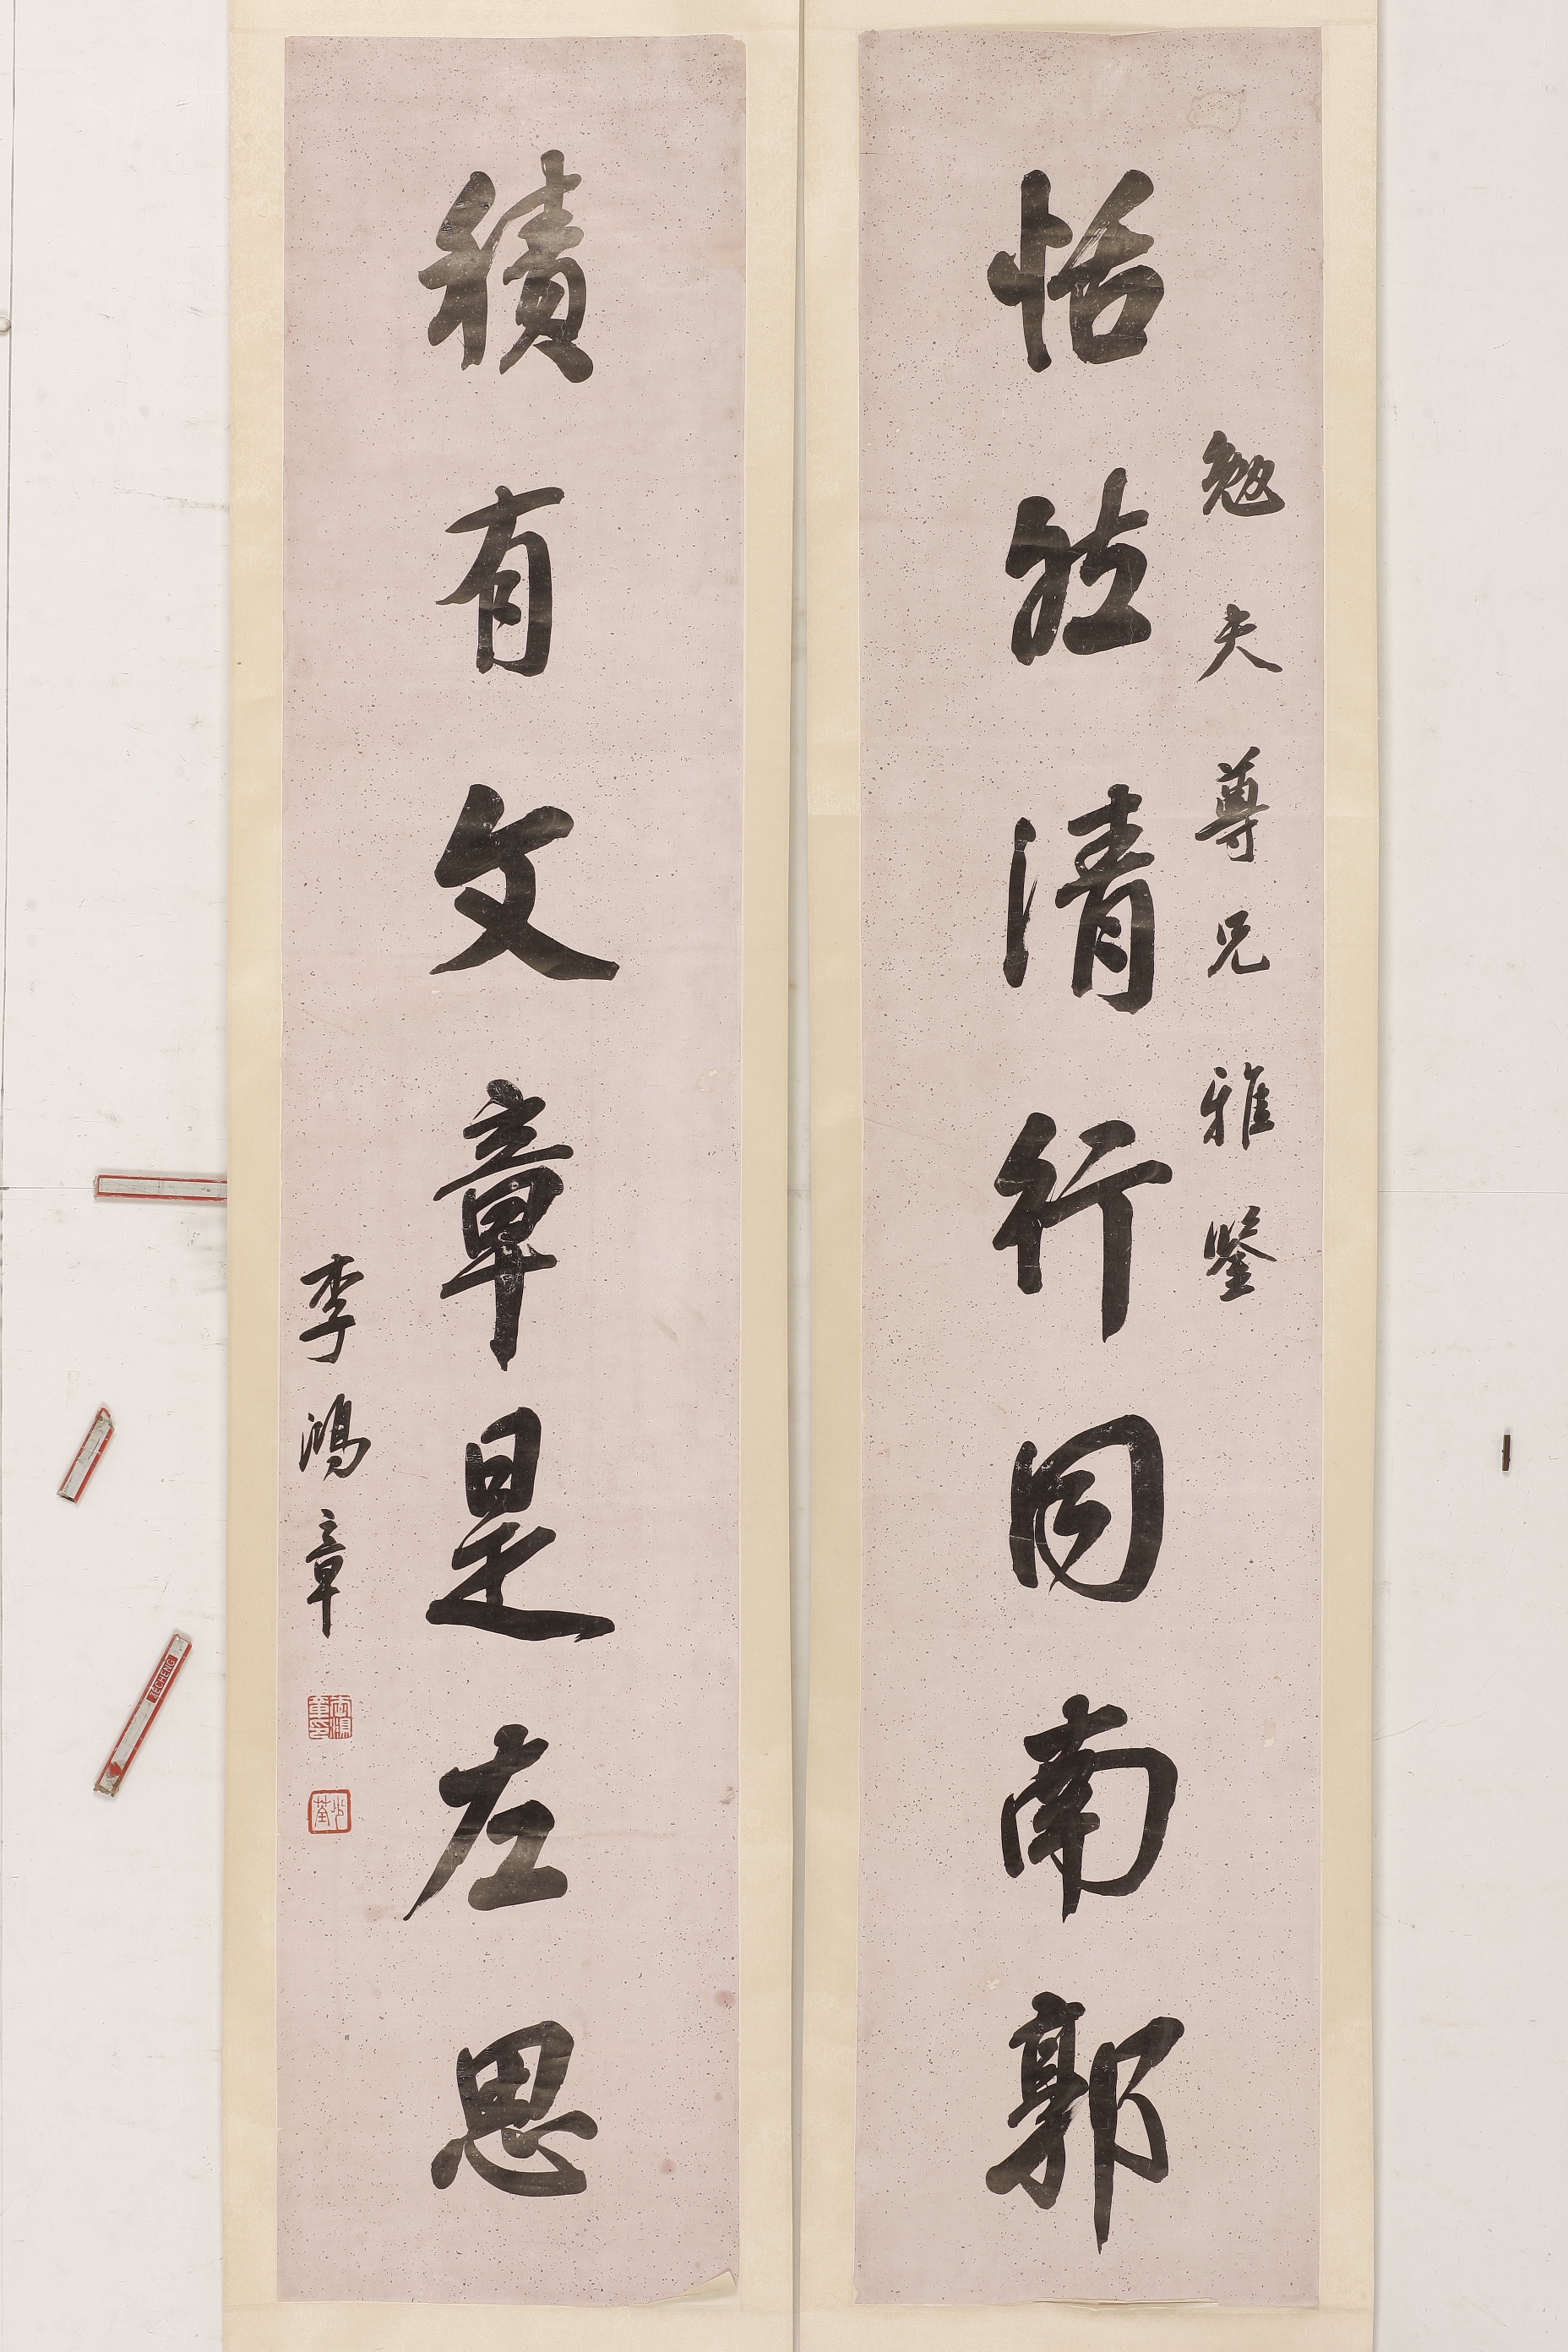 勉夫尊兄雅鑒
恬然清行同南郭
積有文章是左思
李鴻章
李鴻章印
少荃
JECHENG